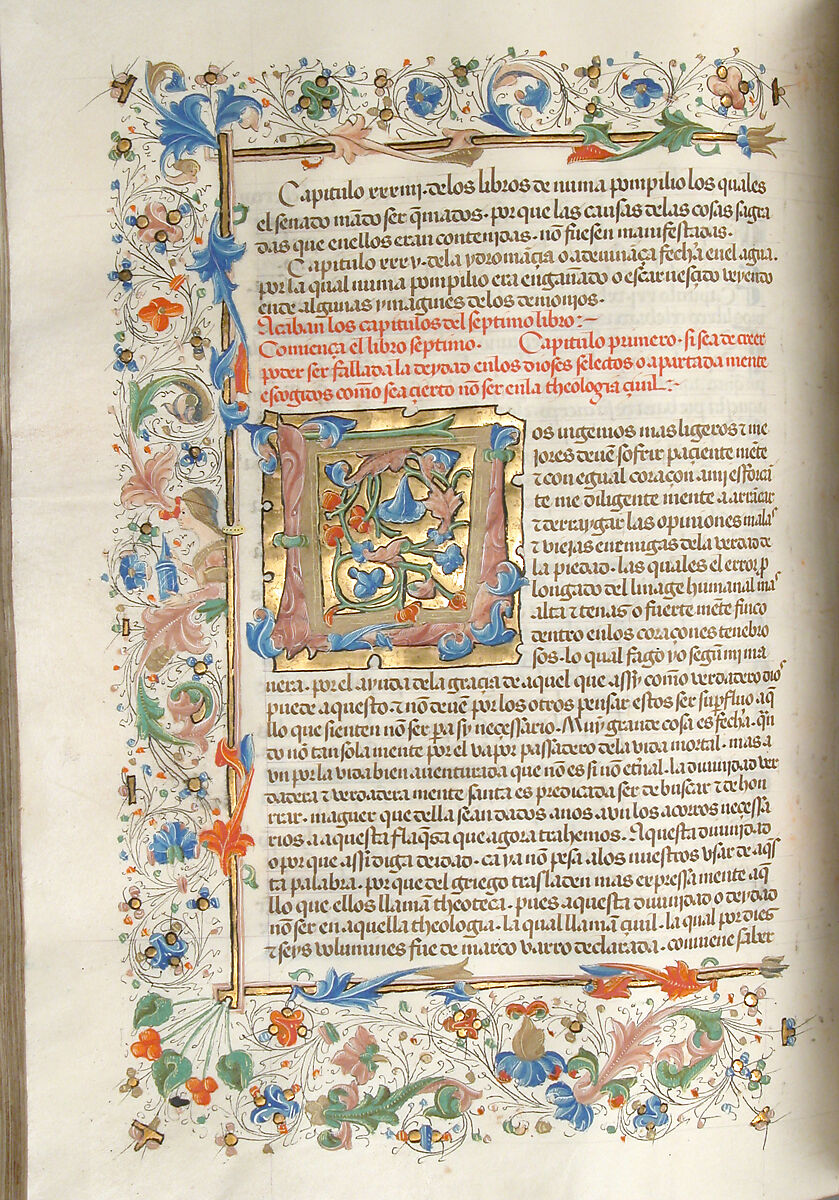 Capitulo xxxiiij. de los libros de numa pompilio los quales
el senado mãdo ser q̃mados. por que las causas delas cosas sagra
das que enellos eran contenjdas. nõ fuesen manifestadas.
Capitulo xxxv. dela ydromãçia o adeuinãça fecha enel agua.
por la qual numa pompilio era engañado o escarnesçido veyendo
ende algunas ymagines delos demonios.
Acaban los capitulos del septimo libro:~
Comiença el libro septimo. Capitulo primero. si sea de creer
poder ser fallada la deydad enlos dioses selectos o apartada mente
escogidos como sea çierto nõ ser enla theologia çiuil.:~
L
os ingenios mas ligeros ⁊ me
jores deuẽ sofrir paçiente mẽte
⁊ con egual coraçon. a mi esforçan
te me diligente mente a arrãcar
⁊ derraygar las opiniones malas
⁊ viejas enemigas dela verdad de
la piedad. las quales el error p
longado del linage humanal mas
alta ⁊ tenas o fuerte mẽte finco
dentro enlos coraçones tenebro
sos. lo qual fago yo segũ mi ma
nera. por el ayuda dela graçia de aquel que assy como verdadero dios
puede aquesto. ⁊ nõ deuẽ por los otros pensar estos ser supfluo aq̃
llo que sienten nõ ser pa sy neçessario. Muy grande cosa es fecha. q̃n
do nõ tan sola mente por el vapor passadero dela vida mortal. mas a
vn por la vida bien auenturada que nõ es si nõ eternal. la diuinidad ver
dadera ⁊ verdadera mente santa es predicada ser de buscar ⁊ de hon
rrar. maguer que della sean dados a nos avn los acorros neçessa
rios a aquesta flaq̃sa que agora trahemos. Aquesta diuinjdad
o por que assi diga deidad. ca ya nõ pesa alos nuestros vsar de aq̃s
ta palabra. por que del griego trasladen mas expressa mente aq̃
llo que ellos llamã theoteca. pues aquesta diuinidad o deydad
nõ ser en aquella theologia. la qual llamã çiuil. la qual por dies
⁊ seys volumines fue de marco varro declarada. conuiene saber